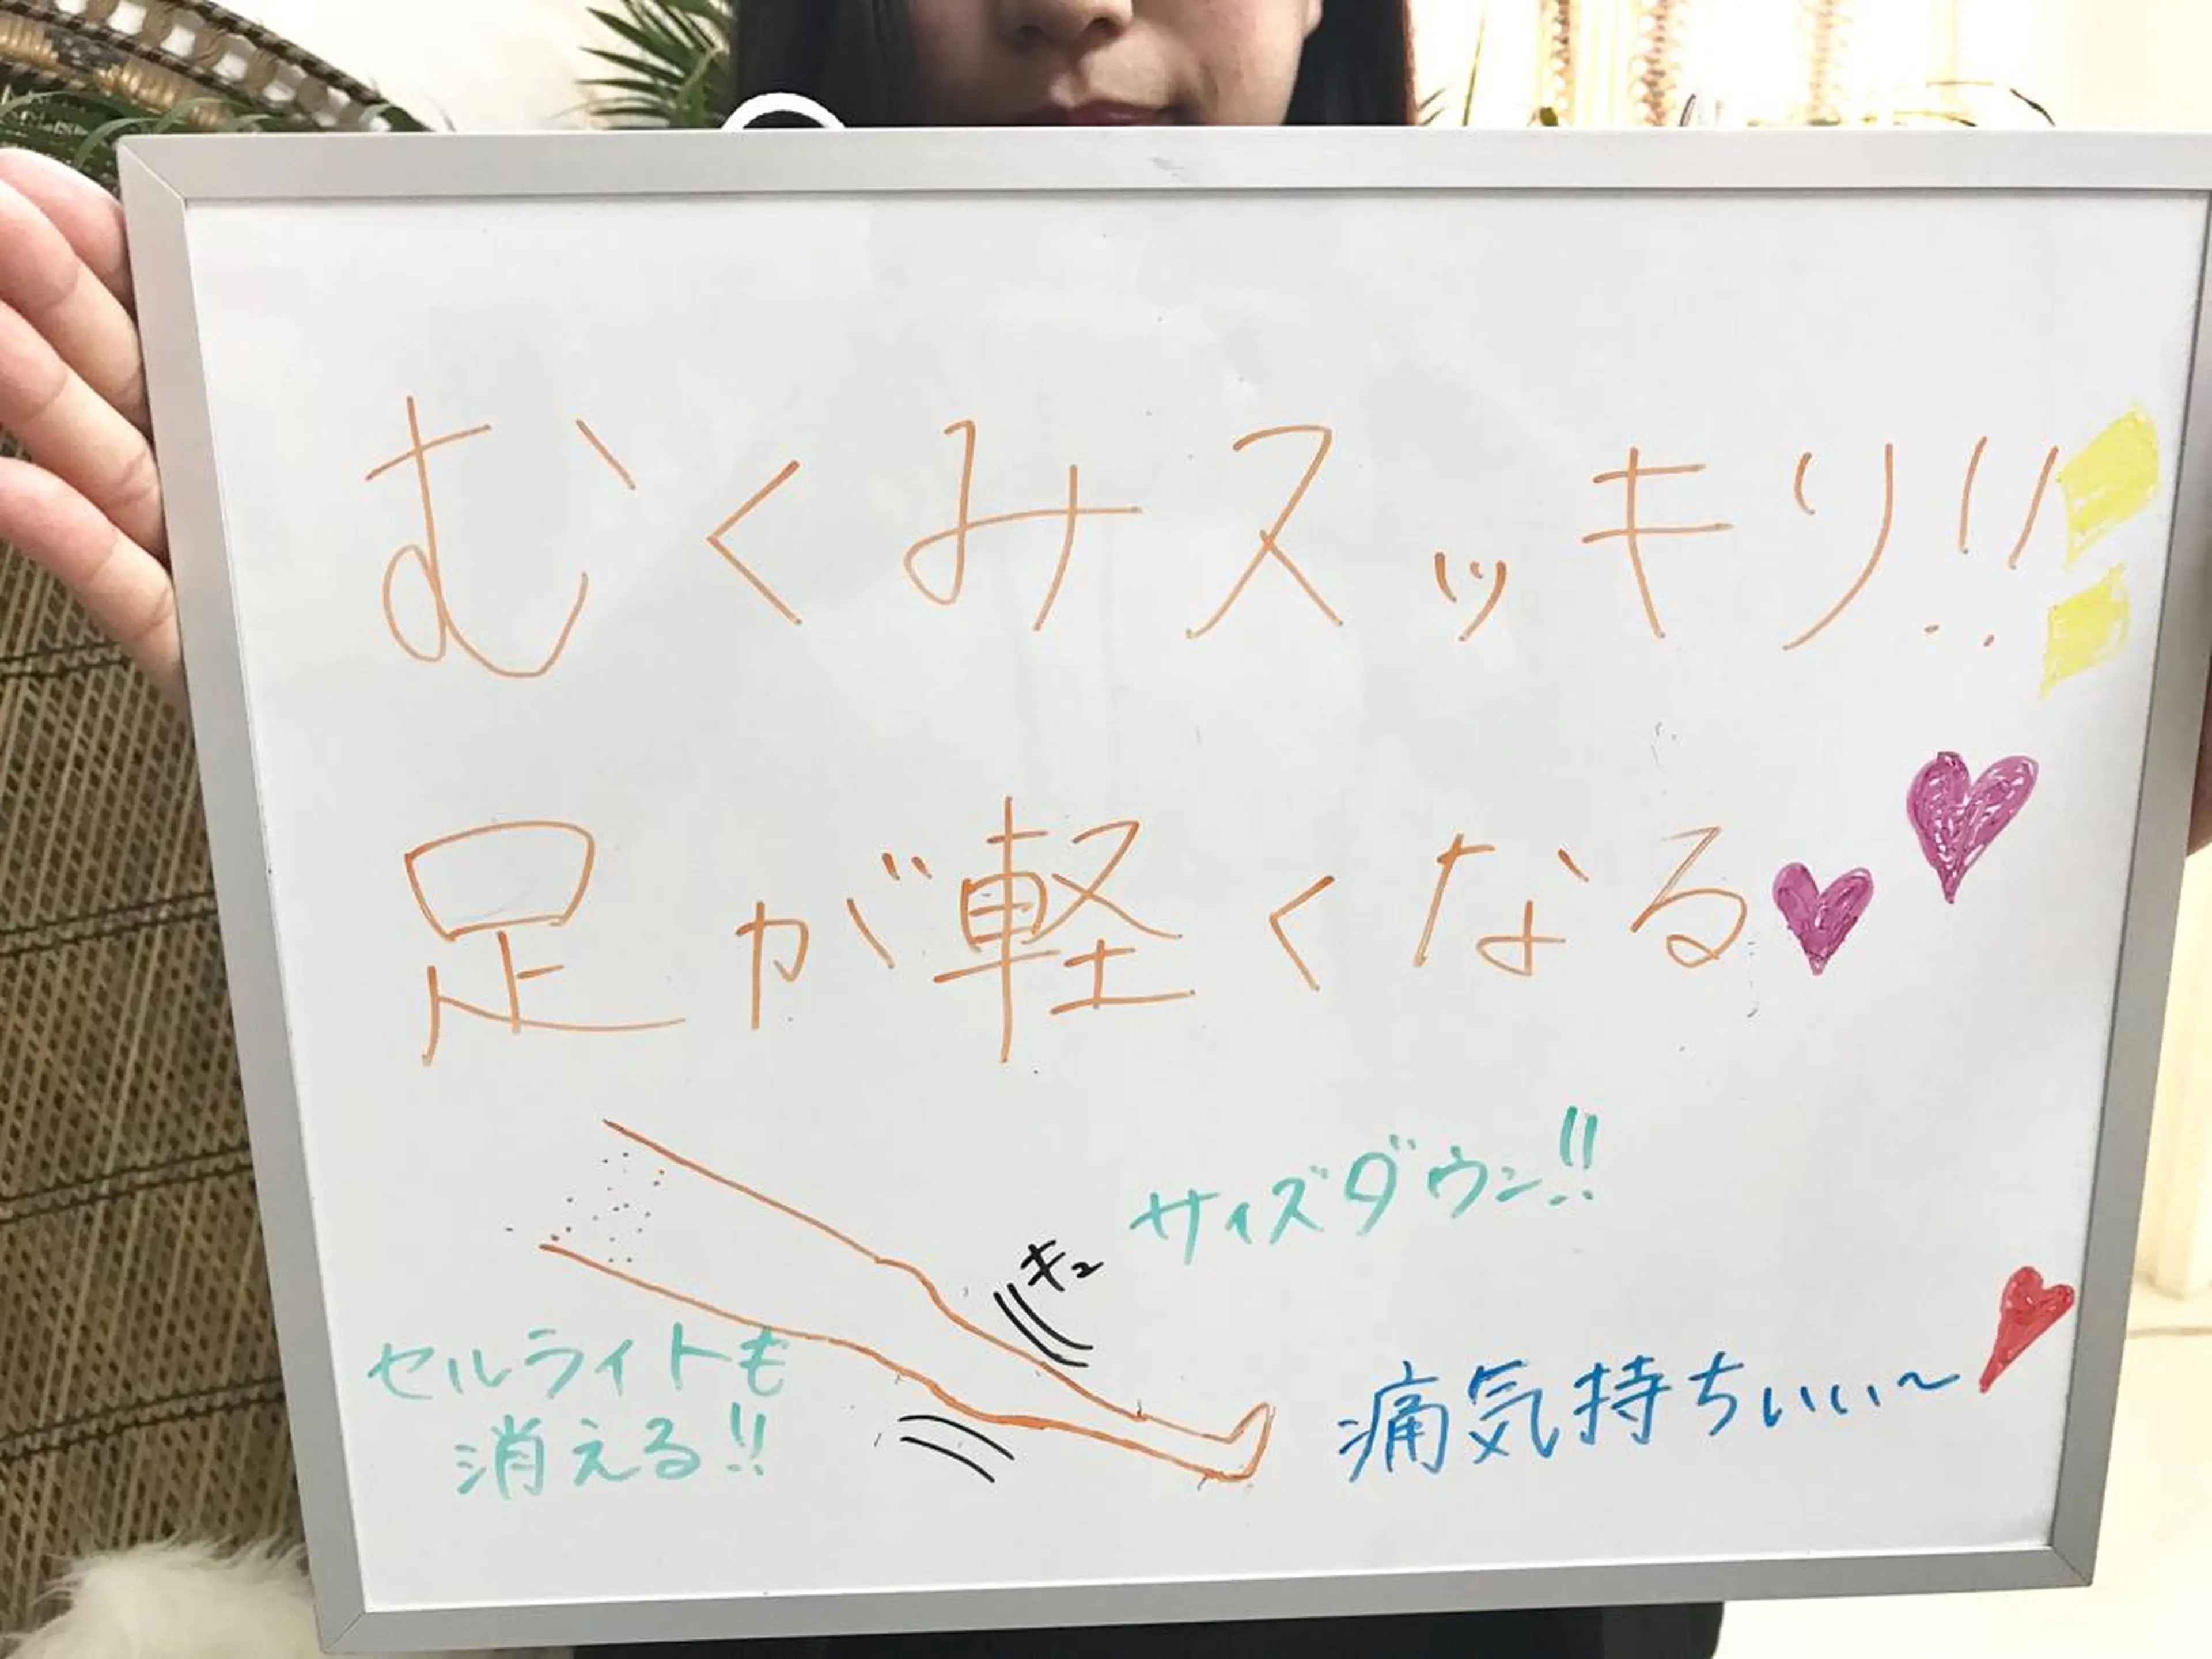 むくみスッキリ!!
足が軽くなる
サイズダウン!!
キュ
セルライトも
消える!!
痛気持ちいい～